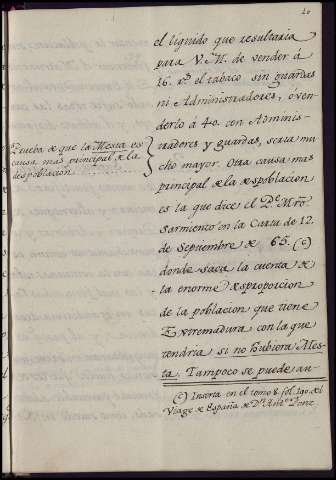 20
el líquido que resultaria
para V. M. de vender á
16. r.s el tabaco sin guardas
ni Administradores, ó ven-
derlo á 40. con Adminis-
tradores y guardas, seria mu-
cho mayor. Otra causa mas
principal de la despoblacion
es la que dice el P.e Mro
Sarmiento en la Carta de 12.
de Septiembre de 65. (c)
donde saca la cuenta de
la enorme desproporcion
de la poblacion que tiene
Extremadura con la que
tendria si no hubiera Mes-
ta. Tampoco se puede an-
Prueba de que la Mesta es
causa mas principal de la
despoblacion
(c) Inserta en el tomo 8. fol. 190. del
Viage de España de D.n Ant.o Ponz